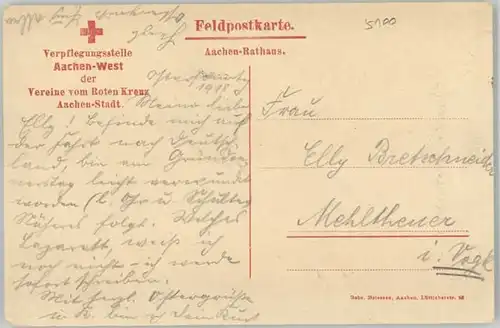 Feldpostkarte.
5100
Verpflegungsstelle
Aachen-West
der
Vereine vom Roten Kreuz
Aachen-Stadt.
Aachen-Rathaus.
1918
Meine liebe
Elly! Befinde mich auf
der Fahrt nach Deutsch
land, bin am Gründon
nerstag leicht verwundet
worden (l. Ohr u. Schulter
Näheres folgt. Welches
Lazarett, weiß ich
noch nicht - ich werde
sofort schreiben.
Mit herzl. Ostergrüße
u. K. bin ich Dein Kurt
Frau
Elly Bretschneider
Mehltheuer
i. Vogtl
Gebr. Driessen, Aachen,